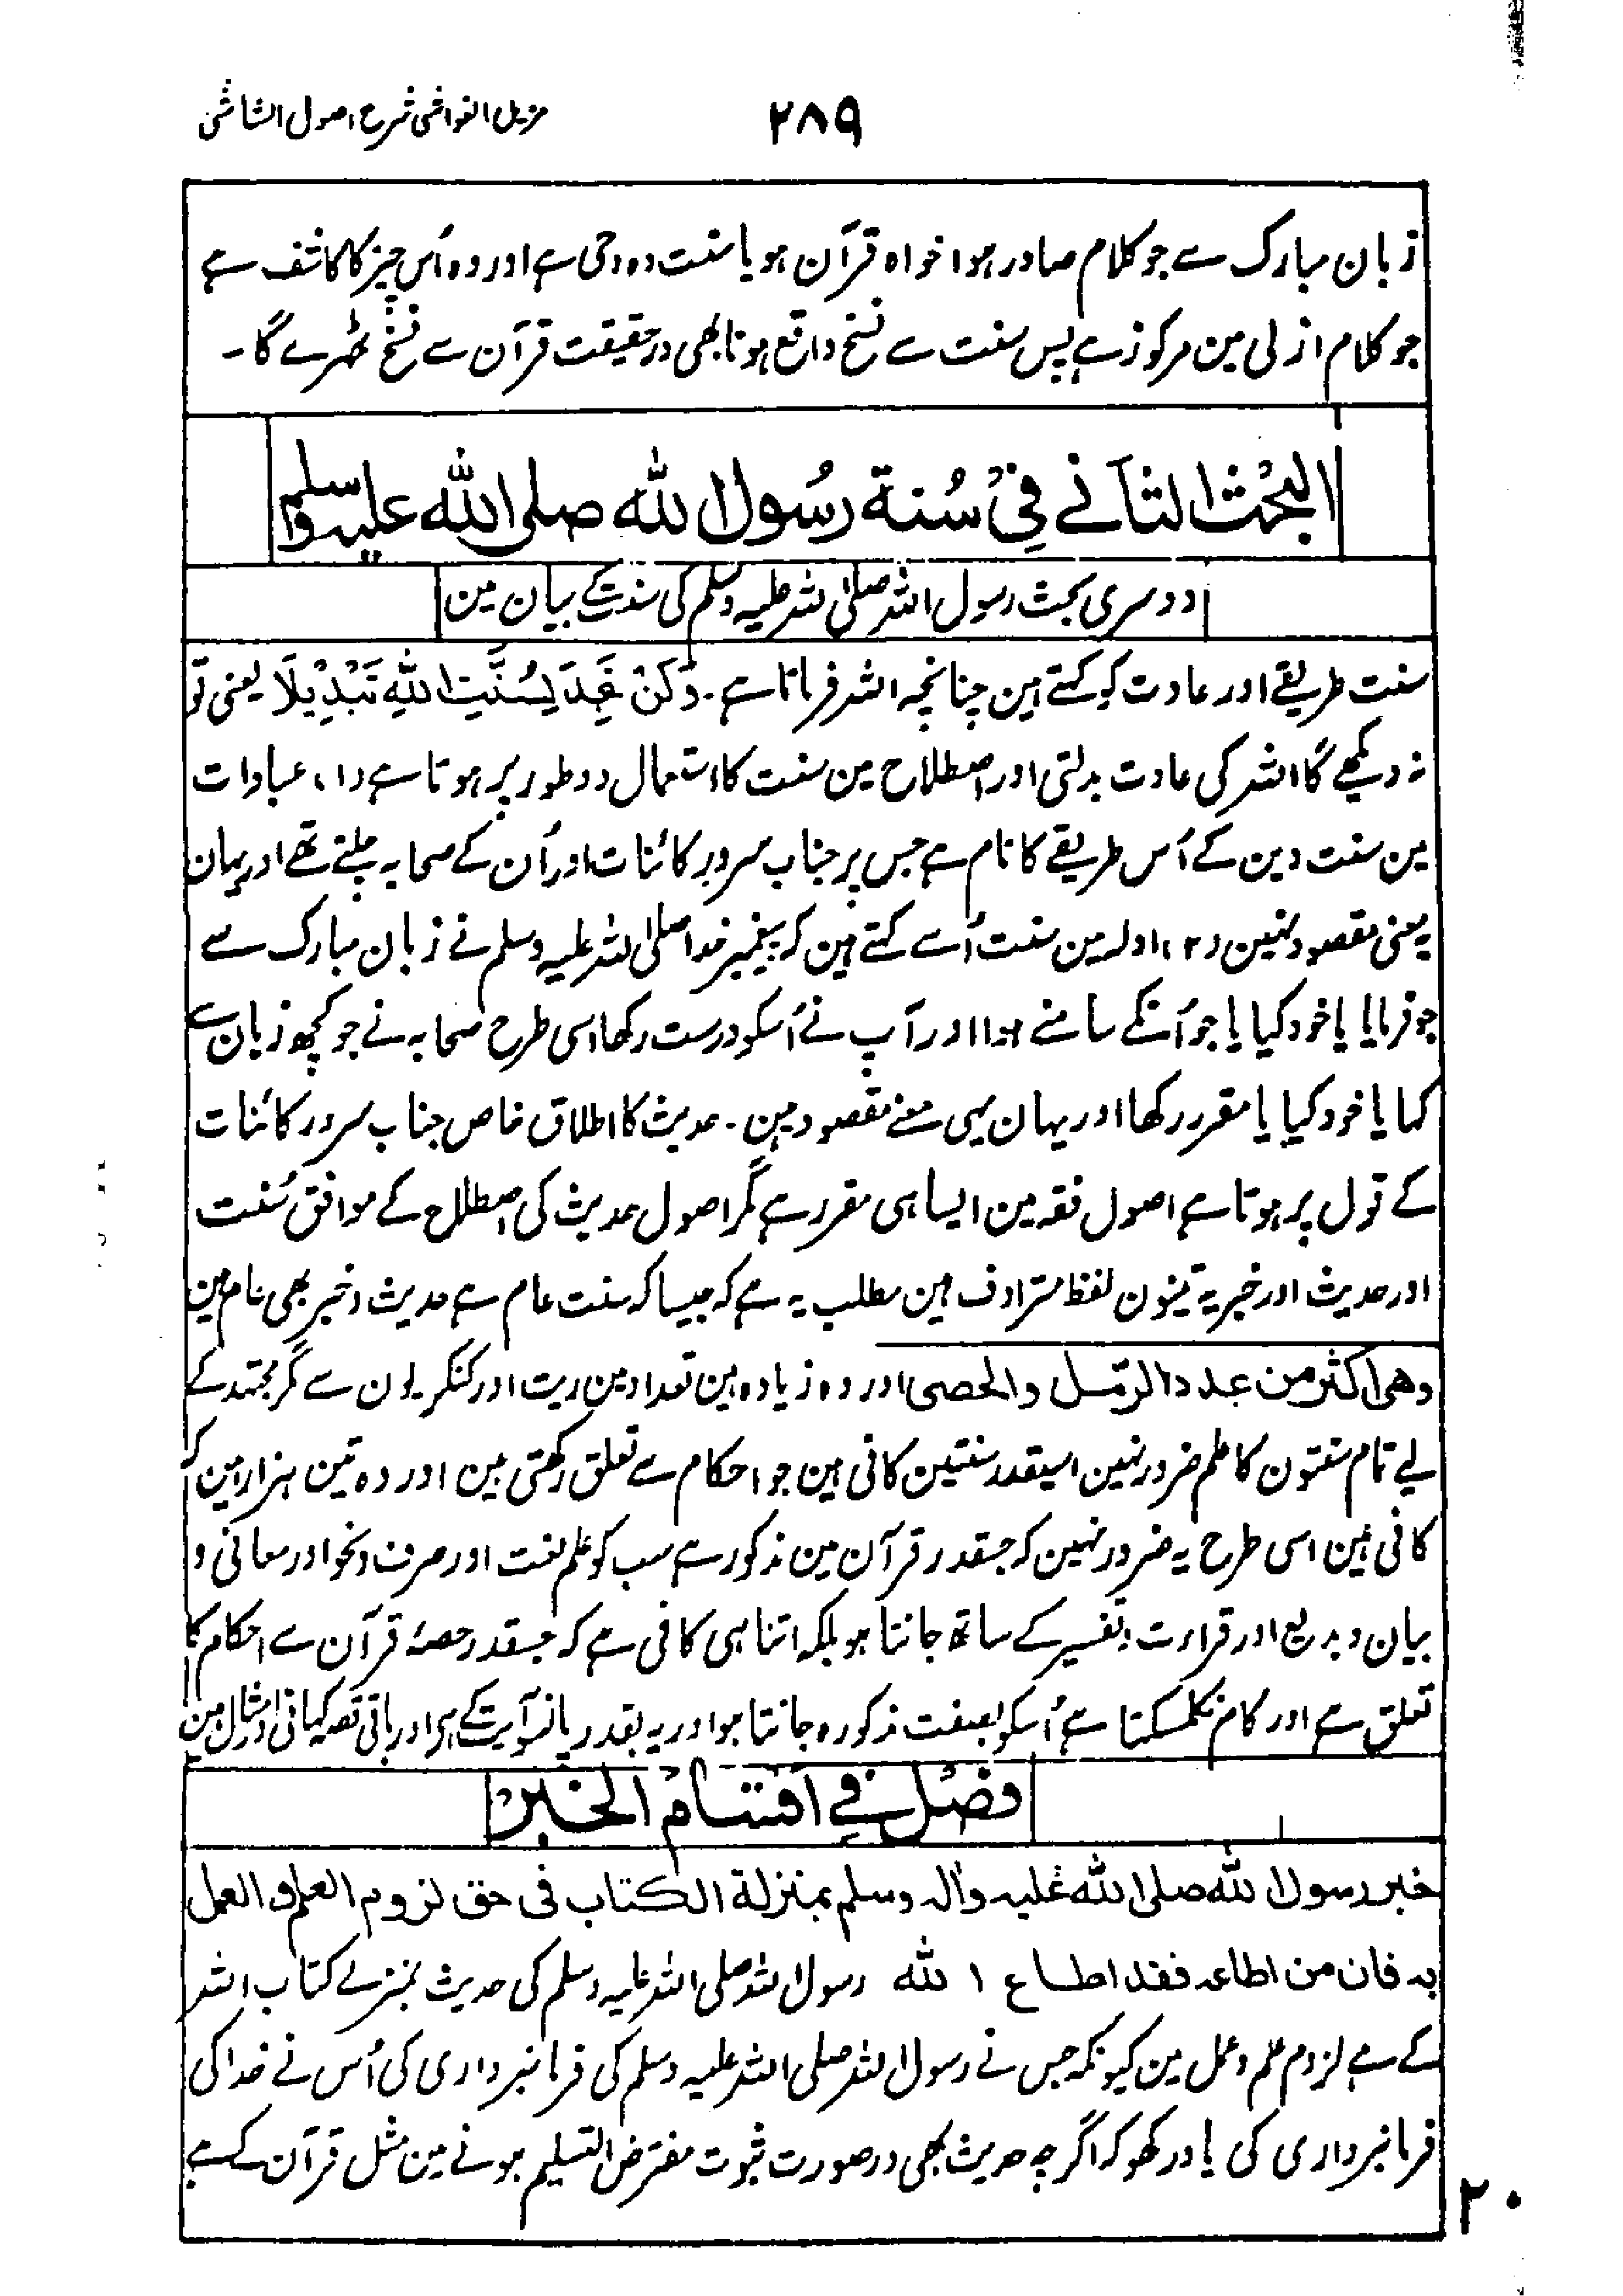 مزیل الغواشی شرح اصول الشاشی
۲۸۹
زبان مبارک سے جو کلام صادر ہوا خواہ قرآن ہو یا سنت وہ وحی ہے اور وہ اُس چیز کا کاشف ہے
جو کلام ازلی مین مرکوز ہے پس سنت سے نسخ واقع ہونا بھی درحقیقت قرآن سے نسخ ٹھرے گا۔
البحث الثانے فِیْ سُنة رسُول الله صلى الله عليه وسلم
دوسری بحث رسول اللہ صلی اللہ علیہ وسلم کی سنت کے بیان مین
سنت طریقے اور عادت کو کہتے ہین چنانچہ اللہ فرماتا ہے۔ وَلَنْ تَجِدَ لِسُنَّتِ اللهِ تَبْدِيْلًا یعنی تو
نہ دیکھے گا اللہ کی عادت بدلتی اور اصطلاح مین سنت کا استعمال دو طور پر ہوتا ہے (۱) عبادات
مین سنت دین کے اُس طریقے کا نام ہے جس پر جناب سرورِ کائنات اور اُن کے صحابہ چلتے تھے اور یہان
یہ معنی مقصود نہین (۲) ادلہ مین سنت اُسے کہتے ہین کہ پیغمبر خدا صلی اللہ علیہ وسلم نے زبان مبارک سے
جو فرمایا یا خود کیا یا جو اُنکے سامنے ہوا اور آپ نے اُسکو درست رکھا اسی طرح صحابہ نے جو کچھ زبان سے
کہا یا خود کیا یا مقرر رکھا اور یہان یہی معنے مقصود ہین۔ حدیث کا اطلاق خاص جناب سرور کائنات
کے قول پر ہوتا ہے اصول فقہ مین ایسا ہی مقرر ہے مگر اصول حدیث کی اصطلاح کے موافق سُنت
اور حدیث اور خبر یہ تینون لفظ مترادف ہین مطلب یہ ہے کہ جیسا کہ سنت عام ہے حدیث و خبر بھی عام ہین
وهي اكثر من عدد الرّمل والحصى اور وہ زیادہ ہین تعداد مین ریت اور کنکریون سے مگر مجتہد کے
لیے تمام سنتون کا علم ضرور نہین اسیقدر سنتین کافی ہین جو احکام سے تعلق رکھتی ہین اور وہ تین ہزار ہین کہ
کافی ہین اسی طرح یہ ضرور نہین کہ جسقدر قرآن مین مذکور ہے سب کو علم لغت اور صرف ونحو اور معانی و
بیان و بدیع اور قراءت و تفسیر کے ساتھ جانتا ہو بلکہ اتنا ہی کافی ہے کہ جسقدر حصۂ قرآن سے احکام کا
تعلق ہے اور کام نکلسکتا ہے اُسکو بصفت مذکورہ جانتا ہو اور یہ بقدر پانسو آیت کے ہے اور باقی قصہ کہانی و امثال ہین
فصل في اقسام الخبر
خبر رسول الله صلى الله عليه واله وسلم بمنزلة الكتاب فى حق لزوم العلم والعمل
به فان من اطاعه فقد اطاع الله رسول اللہ صلی اللہ علیہ وسلم کی حدیث بمنزلے کتاب اللہ
کے ہے لزوم علم و عمل مین کیونکہ جس نے رسول اللہ صلی اللہ علیہ وسلم کی فرمانبرداری کی اُس نے خدا کی
فرمانبرداری کی یاد رکھو کہ اگرچہ حدیث بھی در صورت ثبوت مفترض التسلیم ہونے مین مثل قرآن کے ہے
۲۰